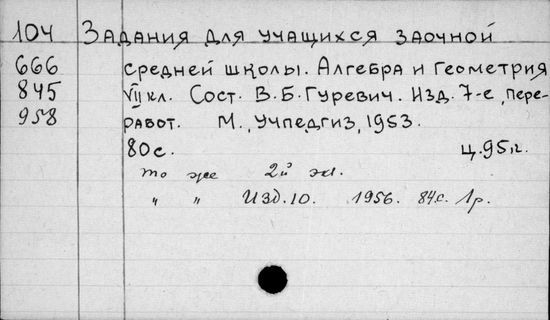 104 Задания для учащихся заочной
666 средней школы. Алгебра и геометрия
845 VII кл. Сост. В.Б.Гуревич. Изд. 7-е, пере-
958 работ. М., Учпедгиз, 1953.
80 с. ц. 95 к.
то же 2й эк.
" " Изд. 10. 1956. 84 с. 1р.